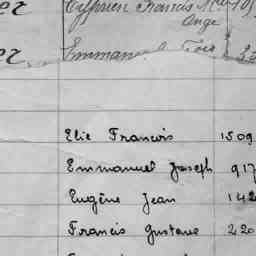 Cyprien Francis
Ange
Emmanuel
Elie Francois 1509
Emmanuel Joseph 917
Eugène Jean 142
Francis Gustave 220